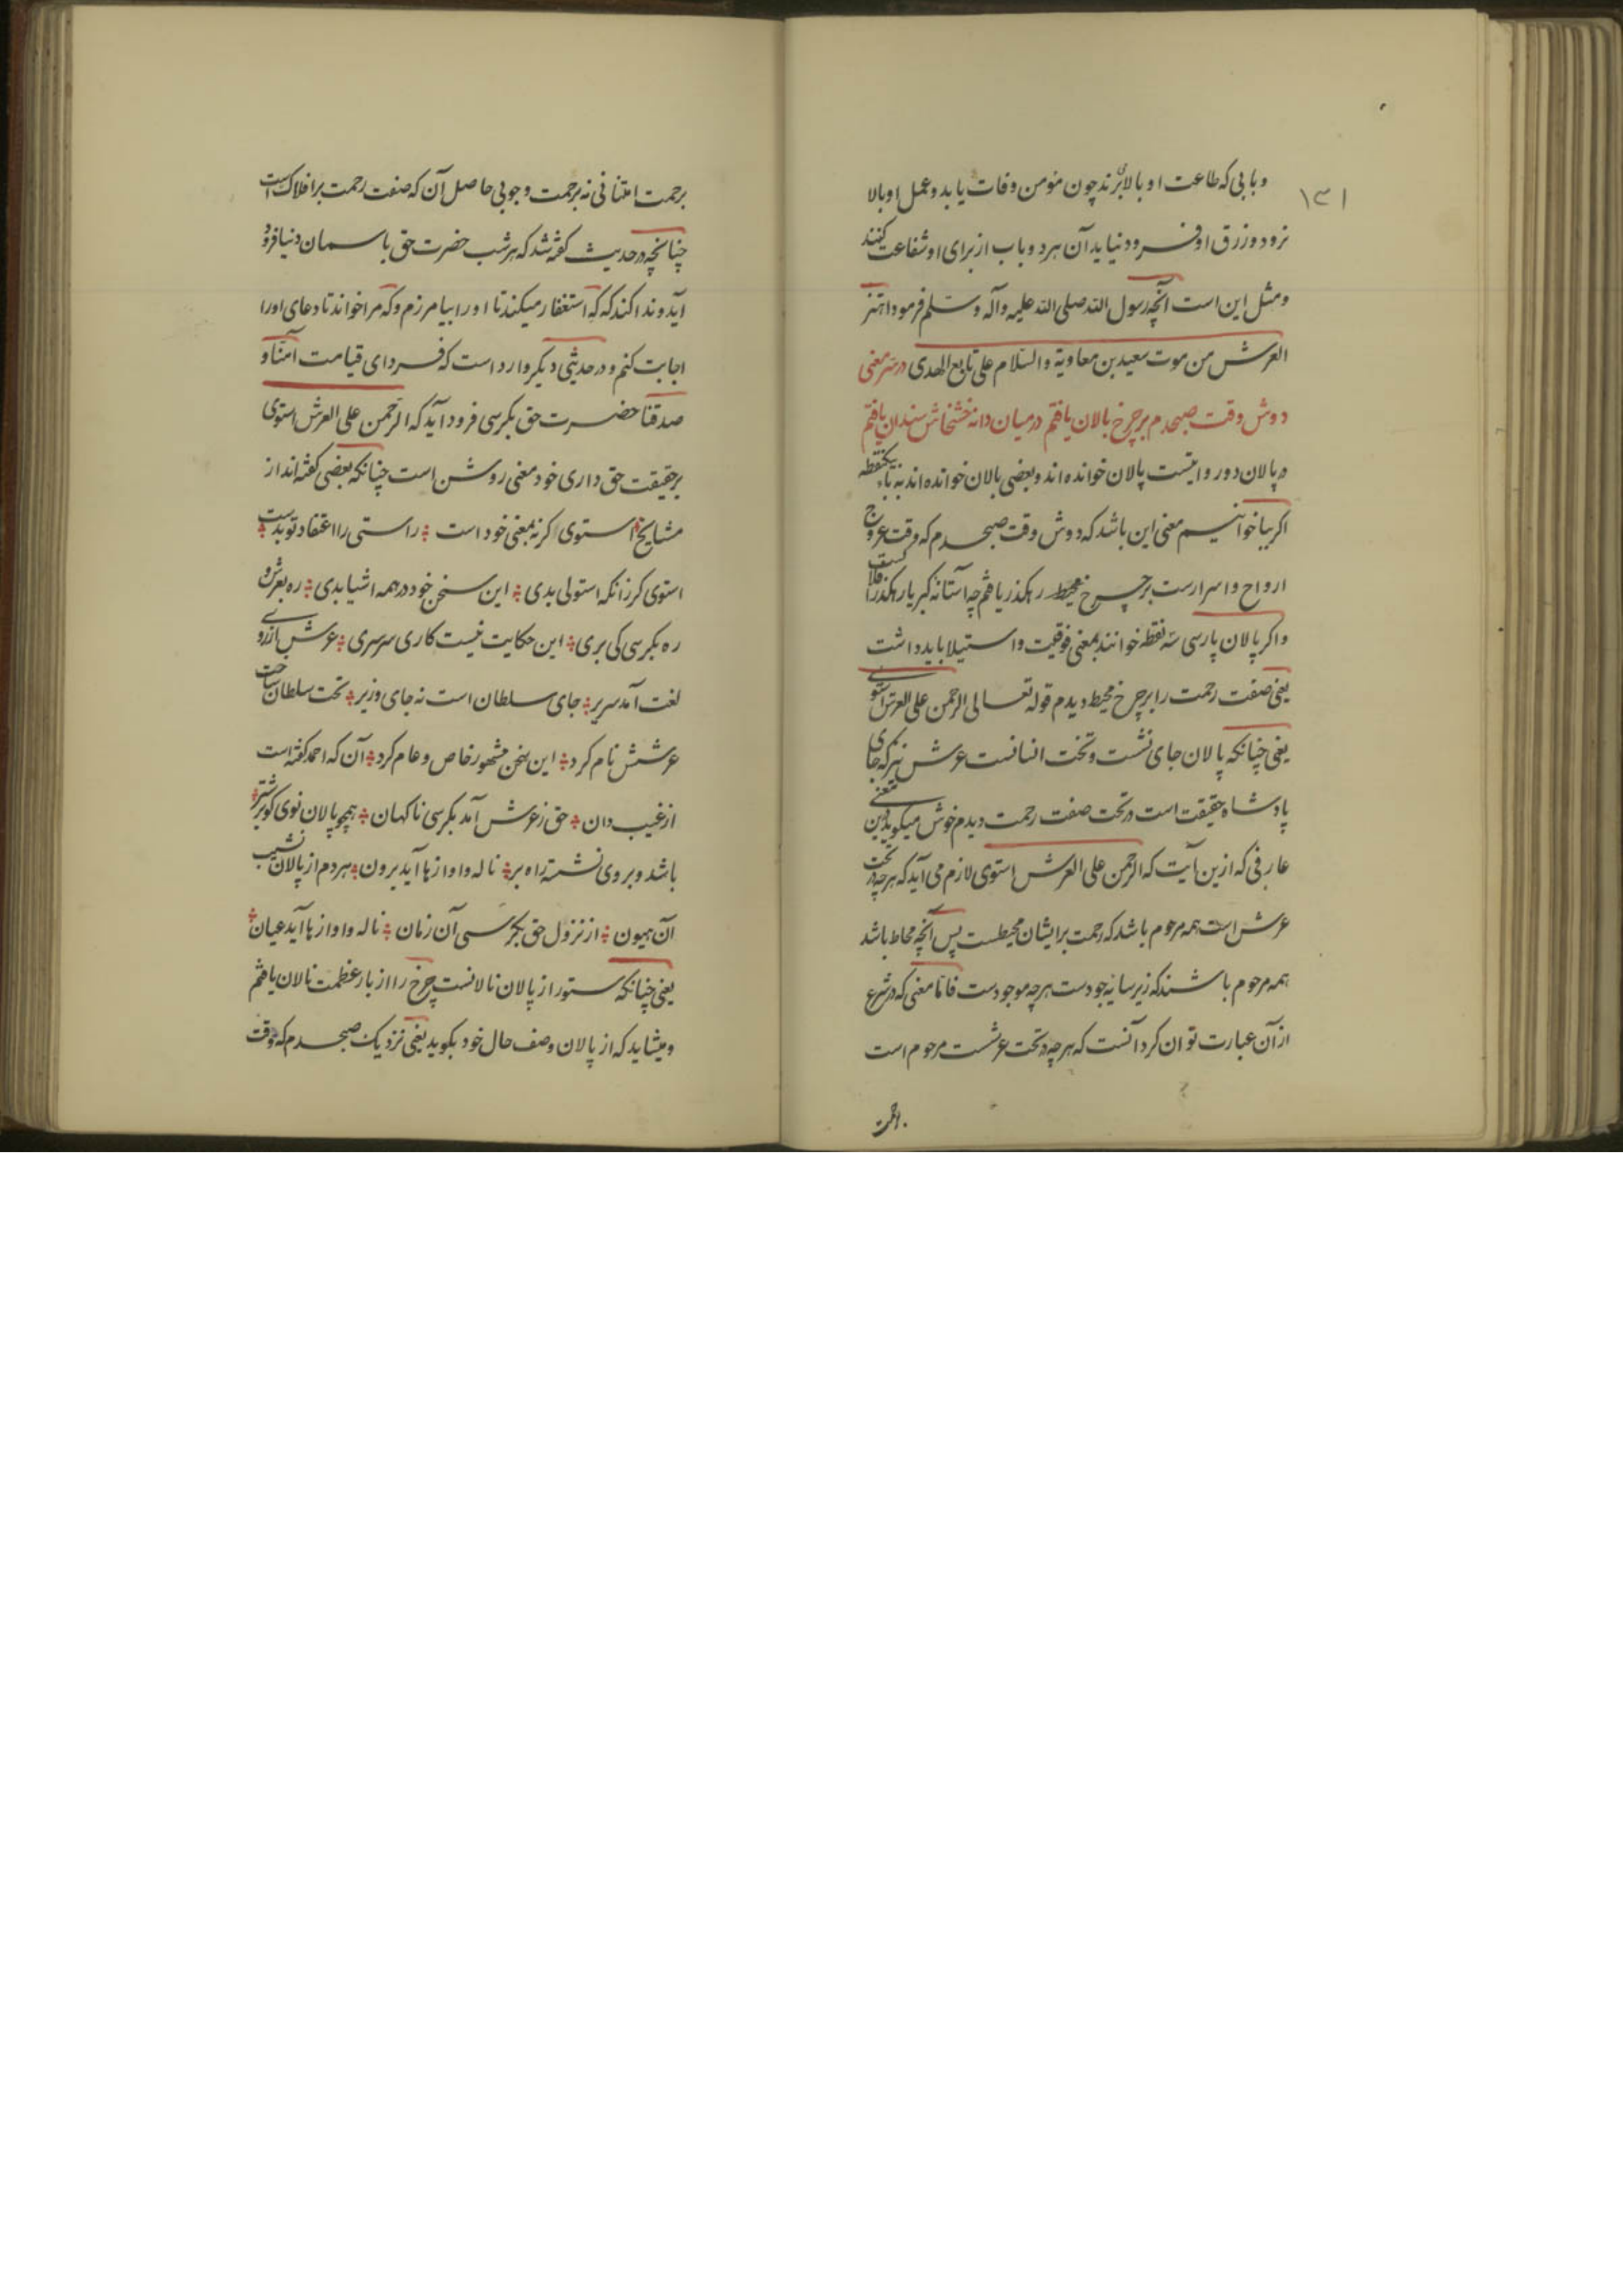 ۱۳۱
و بابی که طاعت او بالا برند چون مؤمن وفات یابد و عمل او بالا
نرود و زرق او فرود نیاید آن هر دو باب از برای او شفاعت کنند
و مثل این است آنچه رسول الله صلی الله علیه و آله و سلم فرمود اهتز
العرش من موت سعید بن معاویة و السلام علی تابع الهدی در سر معنی
دوش وقت صبحدم بر چرخ بالان یافتم در میان دانه خشخاش سندان یافتم
پالان خوانده اند و بعضی بالان خوانده اند به باء یکنقطه
اکر ببا خوانیم معنی این باشد که دوش وقت صبحدم که وقت عروج
ارواح و اسرارست بر چرخ محیط رهکذر یافتم چه آستانه کبریا رهکذر
و اکر پالان پارسی سه نقطه خوانند بمعنی فوقیت و استیلا باید داشت
یعنی صفت رحمت را بر چرخ محیط دیدم قوله تعالی الرحمن علی العرش استوی
یعنی چنانکه پالان جای نشست و تخت انسانست عرش نیز که جای
پادشاه حقیقت است در تحت صفت رحمت دیدم خوش میکوید
عارفی که ازین آیت که الرحمن علی العرش استوی لازم می آید که هر چه در تحت
عرش است همه مرحوم باشد که رحمت بر ایشان محیطست پس آنچه محاط باشد
همه مرحوم باشند که زیر سایه جودست هر چه موجودست فاما معنی که در شرع
از آن عبارت توان کرد آنست که هر چه در تحت عرشست مرحوم است
برحمت
برحمت امتنانی نه برحمت وجوبی حاصل آن که صفت رحمت بر افلاک است
چنانچه در حدیث کفته شد که هر شب حضرت حق باسمان دنیا فرود
آید و ندا کند که که استغفار میکند تا او را بیامرزم و که مرا خواند تا دعای او را
اجابت کنم و در حدیثی دیکر وارد است که فردای قیامت آمنا و
صدقنا حضرت حق بکرسی فرود آید که الرحمن علی العرش استوی
بر حقیقت حق داری خود معنی روشن است چنانکه بعضی کفته اند از
مشایخ استوی کر نه بمعنی خود است راستی را اعتقاد تو بدست
استوی کر زانکه استولی بدی این سخن خود در همه اشیا بدی ره بعرش و
ره بکرسی کی بری این حکایت نیست کاری سرسری عرش از روی
لغت آمد سریر جای سلطان است نه جای وزیر تخت سلطان ساخت
عرشش نام کرد این سخن مشهور خاص و عام کرد آن که احمد کفته است
از غیب دان حق ز عرش آمد بکرسی ناکهان همچو پالان نوی کو بر شتر
باشد و بر وی نشسته راه بر ناله و اوازها آید برون هر دم از پالان نشیب
آن هیون از نزول حق بکرسی آن زمان ناله و اوازها آید عیان
یعنی چنانکه ستور از پالان نالانست چرخ را از بار عظمت نالان یافتم
و میشاید که از پالان وصف حال خود بکوید یعنی نزدیک صبحدم که وقت